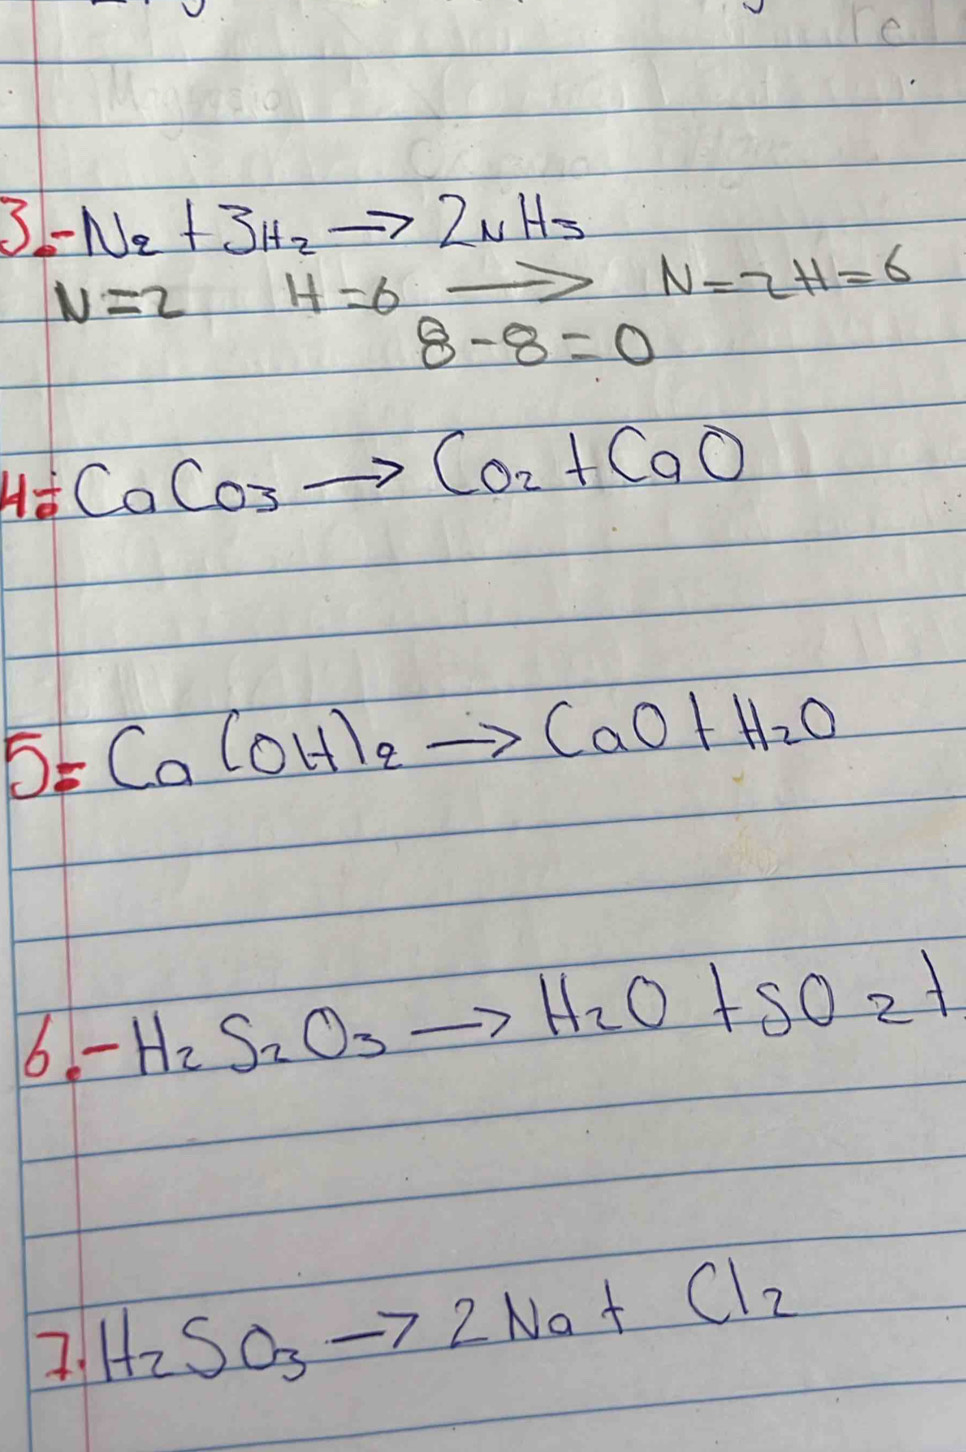 3.- N₂ + 3H₂ → 2NH₃
N=2 H=6 → N=2 H=6
8-8=0
4.- CaCo₃ → Co₂ + CaO
5.- Ca(OH)₂ → CaO + H₂O
6.- H₂S₂O₃ → H₂O + SO₂ +
7. H₂SO₃ → 2Na + Cl₂